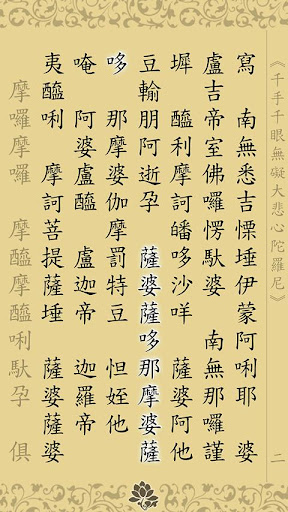 《千手千眼無礙大悲心陀羅尼》 二
寫 南無悉吉慄埵伊蒙阿唎耶 婆
盧吉帝室佛囉楞馱婆 南無那囉謹
墀 醯利摩訶皤哆沙咩 薩婆阿他
豆輸朋阿逝孕 薩婆薩哆那摩婆薩
哆 那摩婆伽摩罰特豆 怛姪他
唵 阿婆盧醯 盧迦帝 迦羅帝
夷醯唎 摩訶菩提薩埵 薩婆薩婆
摩囉摩囉 摩醯摩醯唎馱孕 俱